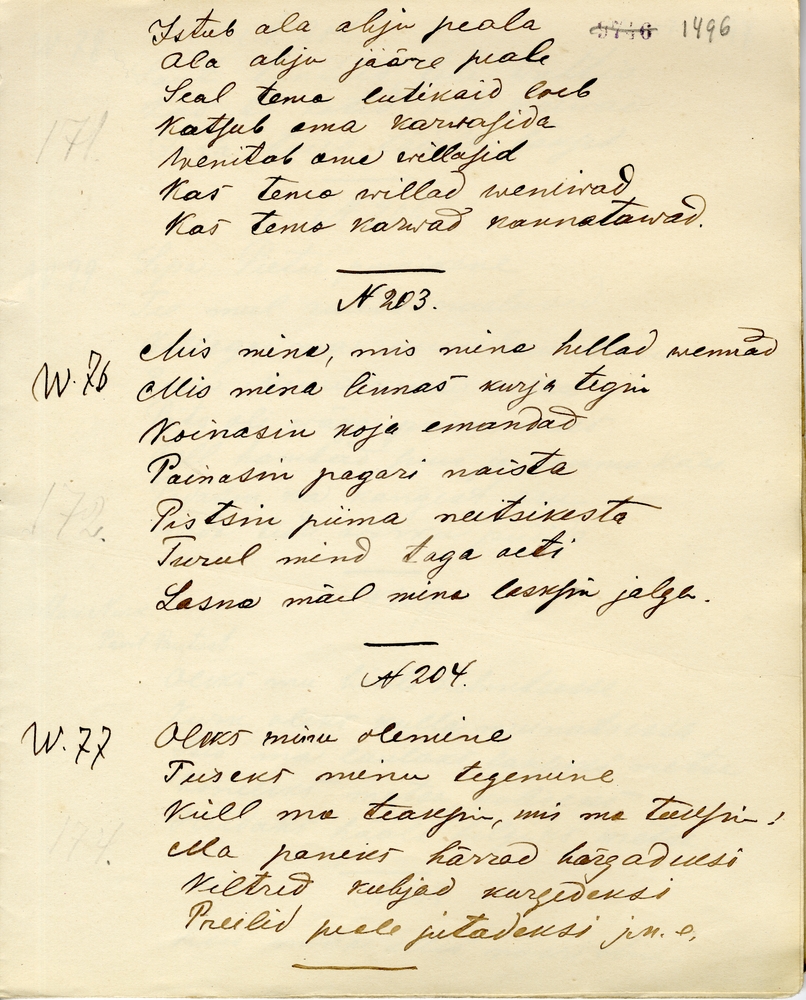 Istub ala ahju peala
5746 1496
Ala ahju jääre peale
Seal tema lutikaid loeb
171.
Katsub oma karwasida
Wenitab oma willasid
Kas tema willad weniwad
Kas tema karwad kannatawad.
N 203.
W. 76
Mis mina, mis mina hellad wennad
Mis mina linnas kurja tegin
Koinasin koja emandad
Painasin pagari naista
172.
Pistsin piima neitsikesta
Turul mind taga aeti
Lasna mäel mina lasksin jalga.
N 204.
W. 77
Oleks minu olemine
Tuseks minu tegemine
Küll ma teaksin, mis ma teeksin!
174.
Ma paneks härrad härgadeksi
Kiltred kubjad kurgedeksi
Preilid peale jutadeksi j.n.e.